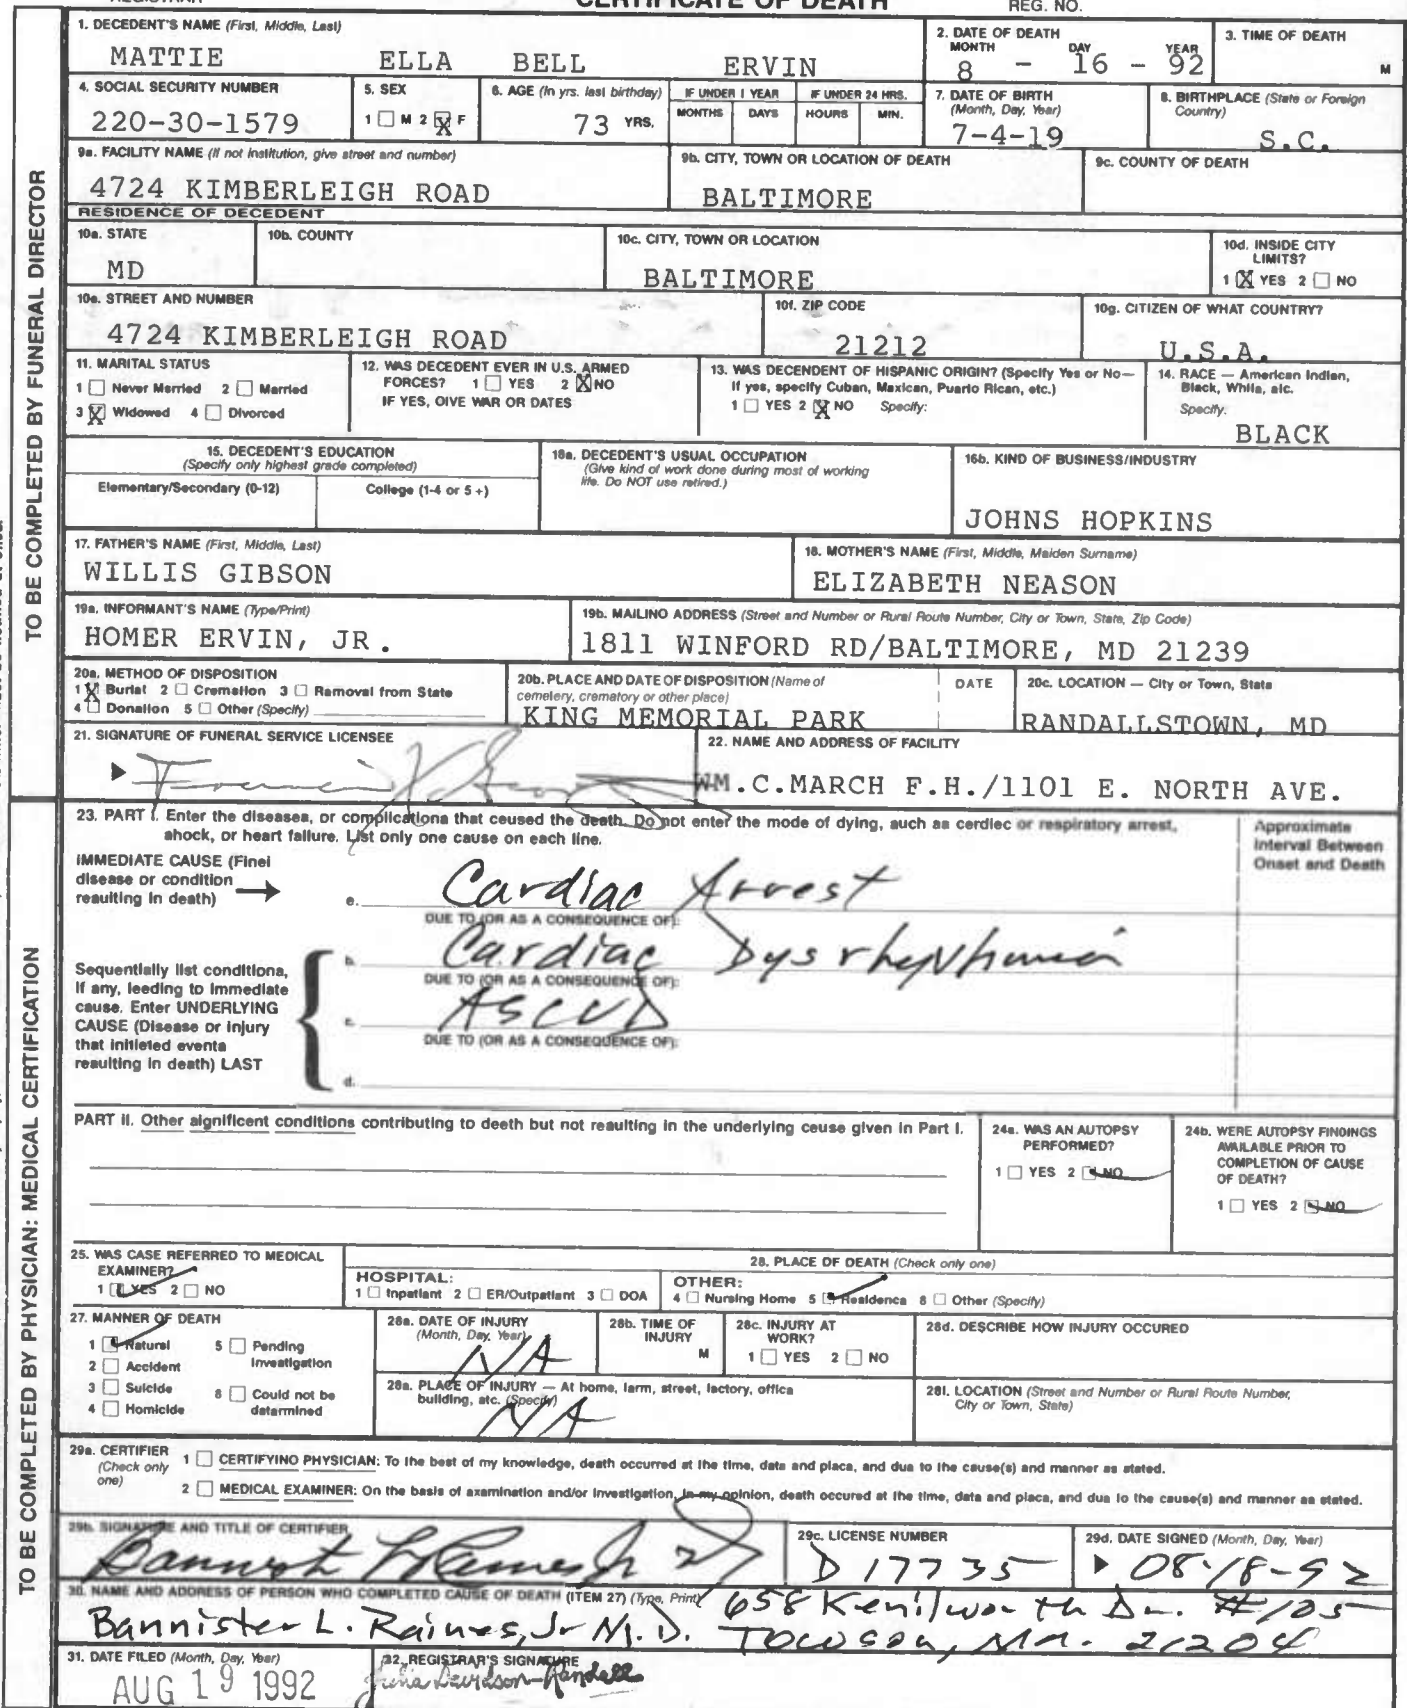 CERTIFICATE OF DEATH
REG. NO.
1. DECEDENT'S NAME (First, Middle, Last)
MATTIE ELLA BELL ERVIN
2. DATE OF DEATH
MONTH DAY YEAR
8 - 16 - 92
3. TIME OF DEATH
M
4. SOCIAL SECURITY NUMBER
220-30-1579
5. SEX
1 M 2 X F
6. AGE (In yrs. last birthday)
73 YRS.
IF UNDER 1 YEAR
MONTHS DAYS
IF UNDER 24 HRS.
HOURS MIN.
7. DATE OF BIRTH
(Month, Day, Year)
7-4-19
8. BIRTHPLACE (State or Foreign
Country)
S.C.
9a. FACILITY NAME (If not institution, give street and number)
4724 KIMBERLEIGH ROAD
9b. CITY, TOWN OR LOCATION OF DEATH
BALTIMORE
9c. COUNTY OF DEATH
RESIDENCE OF DECEDENT
10a. STATE
MD
10b. COUNTY
10c. CITY, TOWN OR LOCATION
BALTIMORE
10d. INSIDE CITY
LIMITS?
1 X YES 2 NO
10e. STREET AND NUMBER
4724 KIMBERLEIGH ROAD
10f. ZIP CODE
21212
10g. CITIZEN OF WHAT COUNTRY?
U.S.A.
11. MARITAL STATUS
1 Never Married 2 Married
3 X Widowed 4 Divorced
12. WAS DECEDENT EVER IN U.S. ARMED
FORCES? 1 YES 2 X NO
IF YES, GIVE WAR OR DATES
13. WAS DECENDENT OF HISPANIC ORIGIN? (Specify Yes or No—
If yes, specify Cuban, Mexican, Puerto Rican, etc.)
1 YES 2 X NO Specify:
14. RACE — American Indian,
Black, White, etc.
Specify:
BLACK
15. DECEDENT'S EDUCATION
(Specify only highest grade completed)
Elementary/Secondary (0-12)
College (1-4 or 5+)
16a. DECEDENT'S USUAL OCCUPATION
(Give kind of work done during most of working
life. Do NOT use retired.)
16b. KIND OF BUSINESS/INDUSTRY
JOHNS HOPKINS
17. FATHER'S NAME (First, Middle, Last)
WILLIS GIBSON
18. MOTHER'S NAME (First, Middle, Maiden Surname)
ELIZABETH NEASON
19a. INFORMANT'S NAME (Type/Print)
HOMER ERVIN, JR.
19b. MAILING ADDRESS (Street and Number or Rural Route Number, City or Town, State, Zip Code)
1811 WINFORD RD/BALTIMORE, MD 21239
20a. METHOD OF DISPOSITION
1 X Burial 2 Cremation 3 Removal from State
4 Donation 5 Other (Specify)
20b. PLACE AND DATE OF DISPOSITION (Name of
cemetery, crematory or other place)
KING MEMORIAL PARK
DATE
20c. LOCATION — City or Town, State
RANDALLSTOWN, MD
21. SIGNATURE OF FUNERAL SERVICE LICENSEE
22. NAME AND ADDRESS OF FACILITY
WM.C.MARCH F.H./1101 E. NORTH AVE.
TO BE COMPLETED BY FUNERAL DIRECTOR
23. PART I. Enter the diseases, or complications that caused the death. Do not enter the mode of dying, such as cardiac or respiratory arrest,
shock, or heart failure. List only one cause on each line.
Approximate
Interval Between
Onset and Death
IMMEDIATE CAUSE (Final
disease or condition
resulting in death)
a. Cardiac Arrest
DUE TO (OR AS A CONSEQUENCE OF):
b. Cardiac Dysrhythmia
DUE TO (OR AS A CONSEQUENCE OF):
c. ASCVD
DUE TO (OR AS A CONSEQUENCE OF):
d.
Sequentially list conditions,
if any, leading to immediate
cause. Enter UNDERLYING
CAUSE (Disease or injury
that initiated events
resulting in death) LAST
PART II. Other significant conditions contributing to death but not resulting in the underlying cause given in Part I.
24a. WAS AN AUTOPSY
PERFORMED?
1 YES 2 NO
24b. WERE AUTOPSY FINDINGS
AVAILABLE PRIOR TO
COMPLETION OF CAUSE
OF DEATH?
1 YES 2 NO
25. WAS CASE REFERRED TO MEDICAL
EXAMINER?
1 YES 2 NO
26. PLACE OF DEATH (Check only one)
HOSPITAL:
1 Inpatient 2 ER/Outpatient 3 DOA
OTHER:
4 Nursing Home 5 Residence 6 Other (Specify)
27. MANNER OF DEATH
1 Natural 5 Pending
Investigation
2 Accident
3 Suicide 6 Could not be
determined
4 Homicide
28a. DATE OF INJURY
(Month, Day, Year)
N/A
28b. TIME OF
INJURY
M
28c. INJURY AT
WORK?
1 YES 2 NO
28d. DESCRIBE HOW INJURY OCCURED
28e. PLACE OF INJURY — At home, farm, street, factory, office
building, etc. (Specify)
N/A
28f. LOCATION (Street and Number or Rural Route Number,
City or Town, State)
29a. CERTIFIER
(Check only
one)
1 CERTIFYING PHYSICIAN: To the best of my knowledge, death occurred at the time, date and place, and due to the cause(s) and manner as stated.
2 MEDICAL EXAMINER: On the basis of examination and/or investigation, in my opinion, death occured at the time, date and place, and due to the cause(s) and manner as stated.
29b. SIGNATURE AND TITLE OF CERTIFIER
29c. LICENSE NUMBER
D17735
29d. DATE SIGNED (Month, Day, Year)
08-18-92
30. NAME AND ADDRESS OF PERSON WHO COMPLETED CAUSE OF DEATH (ITEM 27) (Type, Print)
658 Kenilworth Dr. #105
Bannister L. Raines, Jr M.D. Towson, Md. 21204
31. DATE FILED (Month, Day, Year)
AUG 19 1992
32. REGISTRAR'S SIGNATURE
Julia Davidson-Randall
TO BE COMPLETED BY PHYSICIAN: MEDICAL CERTIFICATION